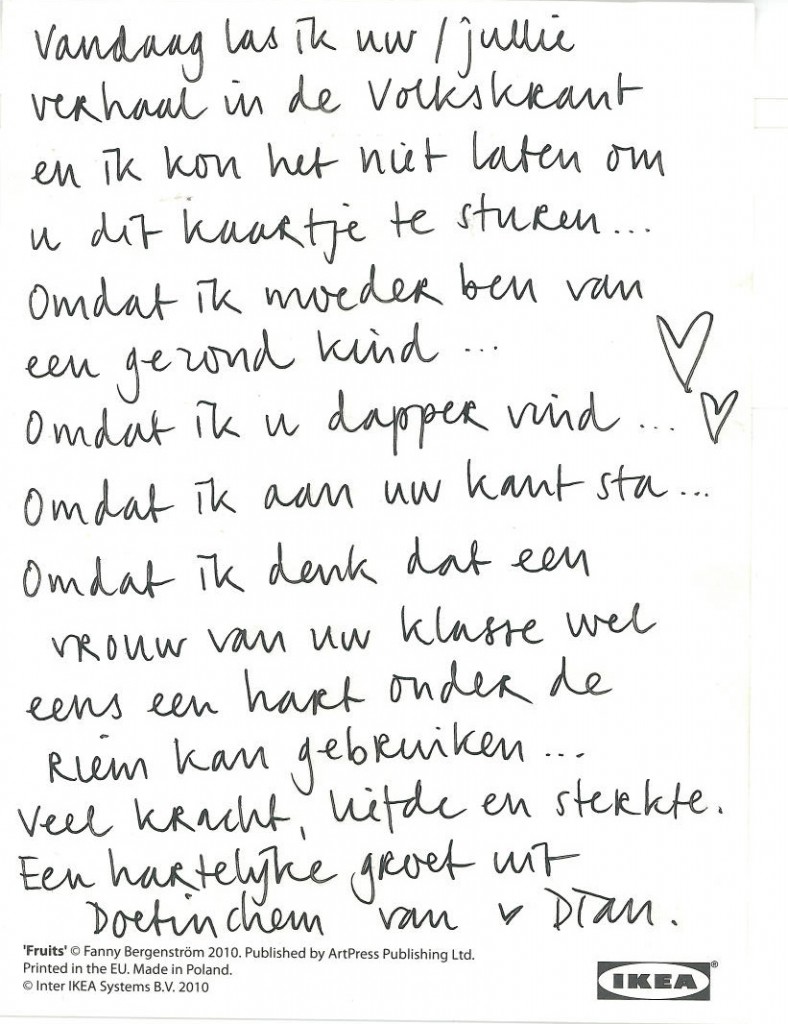 Vandaag las ik uw / jullie
verhaal in de Volkskrant
en ik kon het niet laten om
u dit kaartje te sturen...
Omdat ik moeder ben van
een gezond kind ...
Omdat ik u dapper vind ...
Omdat ik aan uw kant sta ...
Omdat ik denk dat een
vrouw van uw klasse wel
eens een hart onder de
riem kan gebruiken ...
Veel kracht, liefde en sterkte.
Een hartelijke groet uit
Doetinchem van Dian.
'Fruits' © Fanny Bergenström 2010. Published by ArtPress Publishing Ltd.
Printed in the EU. Made in Poland.
© Inter IKEA Systems B.V. 2010
IKEA®